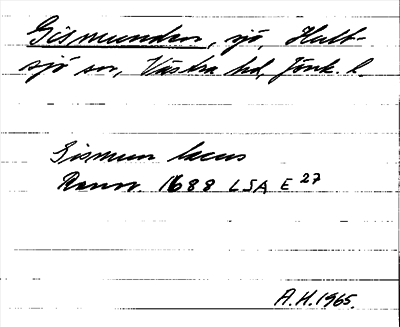 Gismunden, sjö, Hult-
sjö sn, Västra hd, Jönk. l.
Gismun lacus
Rann. 1688 LSA E 27
A.H. 1965.